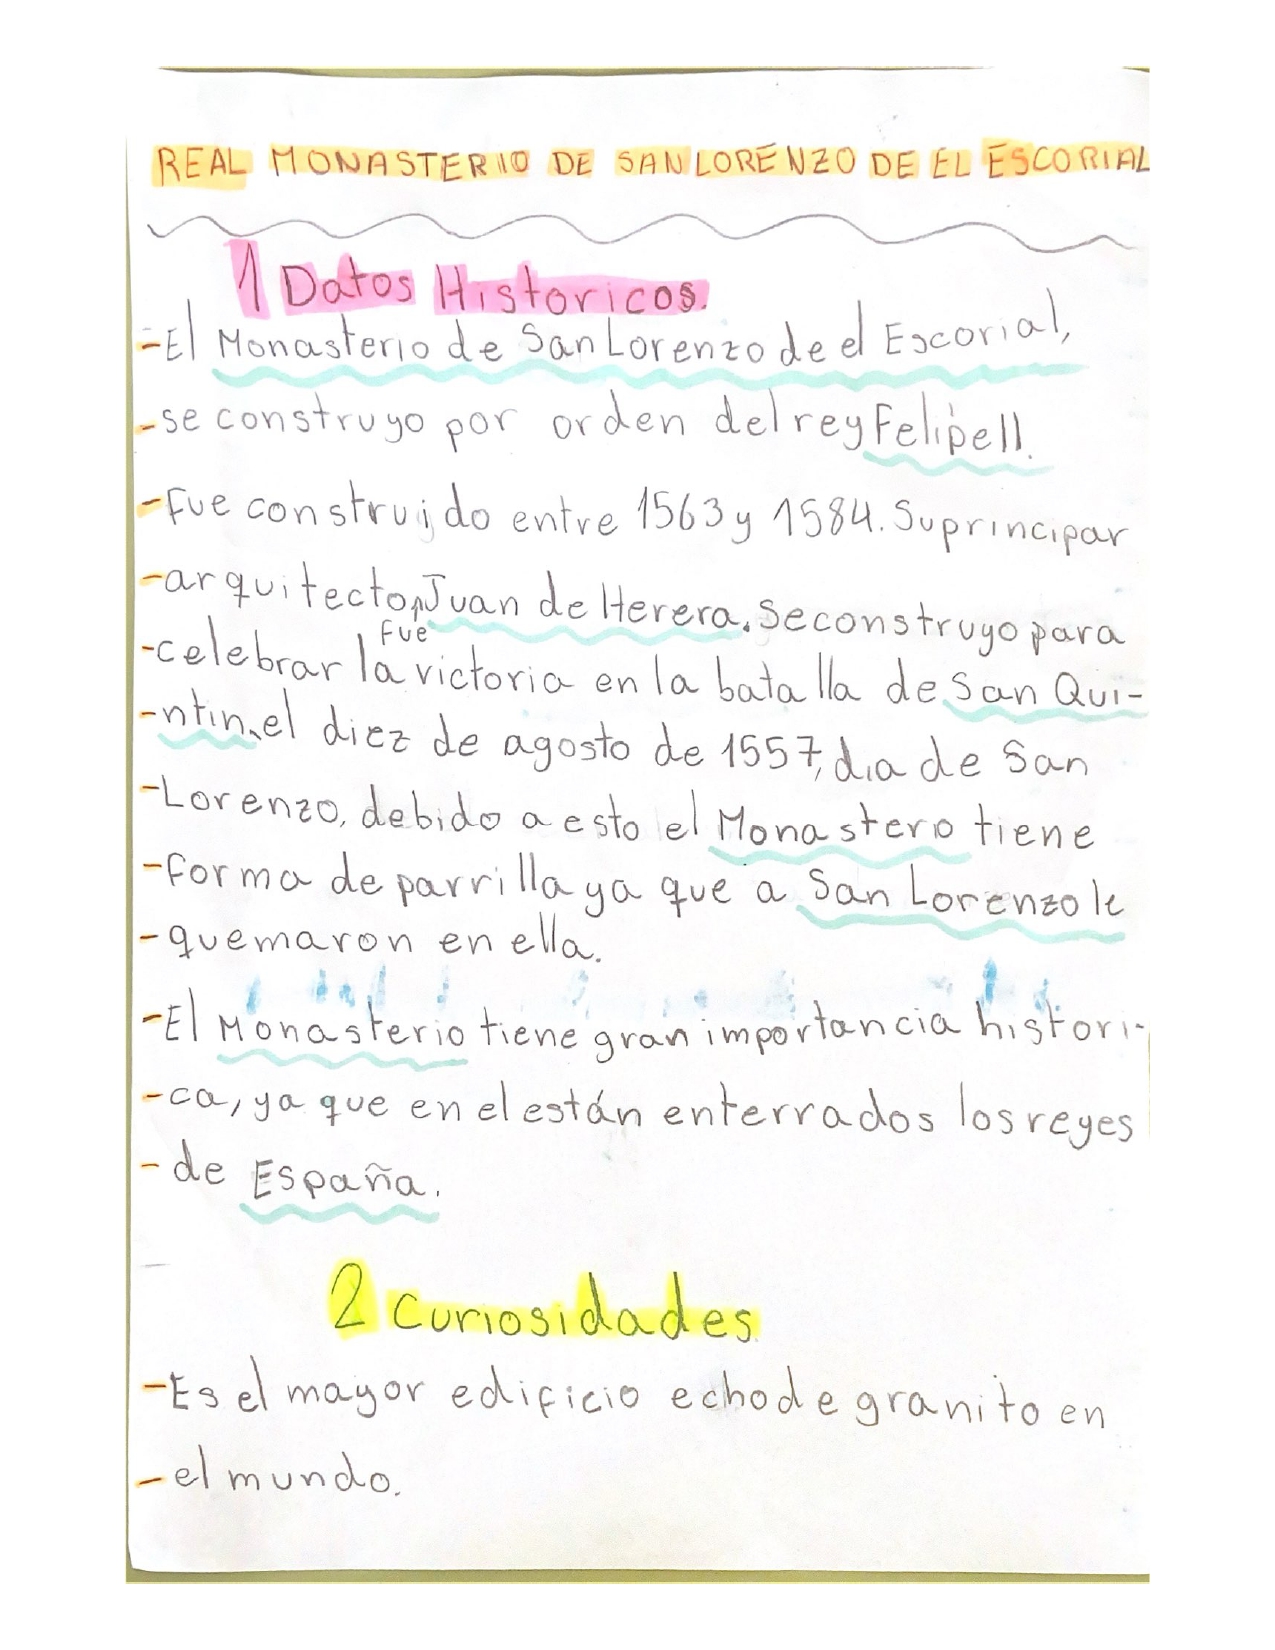 REAL MONASTERIO DE SAN LORENZO DE EL ESCORIAL
1 Datos Historicos.
-El Monasterio de San Lorenzo de el Escorial,
-se construyo por orden del rey Felipe II.
-Fue construido entre 1563 y 1584. Su principar
-arquitecto, Juan de Herera. Se construyo para
fue
-celebrar la victoria en la batalla de San Qui-
-ntin, el diez de agosto de 1557, dia de San
-Lorenzo, debido a esto el Monastero tiene
-forma de parrilla ya que a San Lorenzo le
-quemaron en ella.
-El Monasterio tiene gran importancia histori-
-ca, ya que en el están enterrados los reyes
-de España.
2 Curiosidades
-Es el mayor edificio echo de granito en
-el mundo.